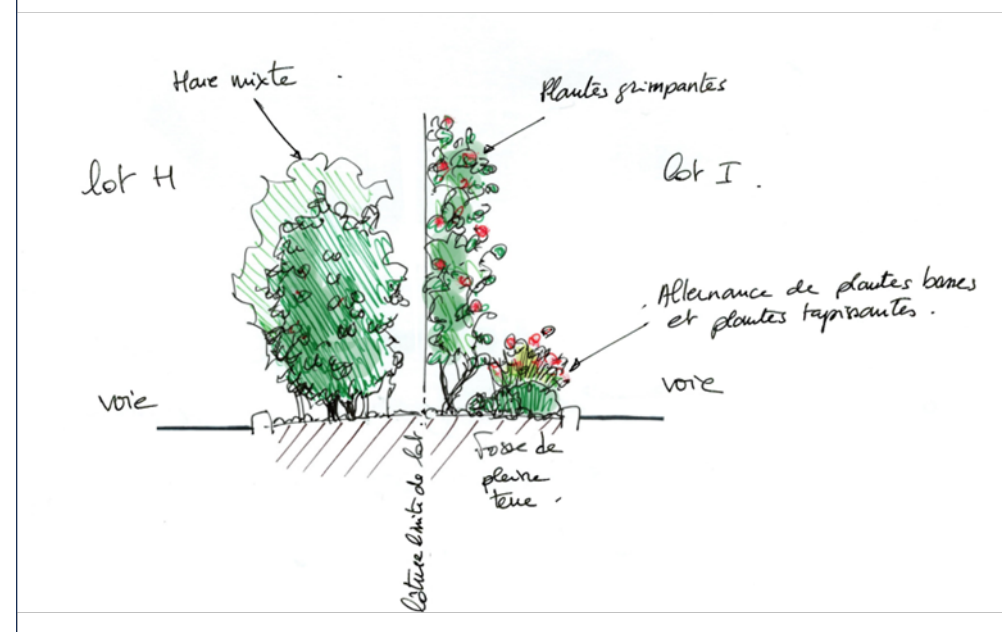 Haie mixte
Plantes grimpantes
lot H
lot I.
. Alternance de plantes basses
et plantes tapissantes.
voie
voie
Fosse de
pleine
terre.
clôture limite de lot.